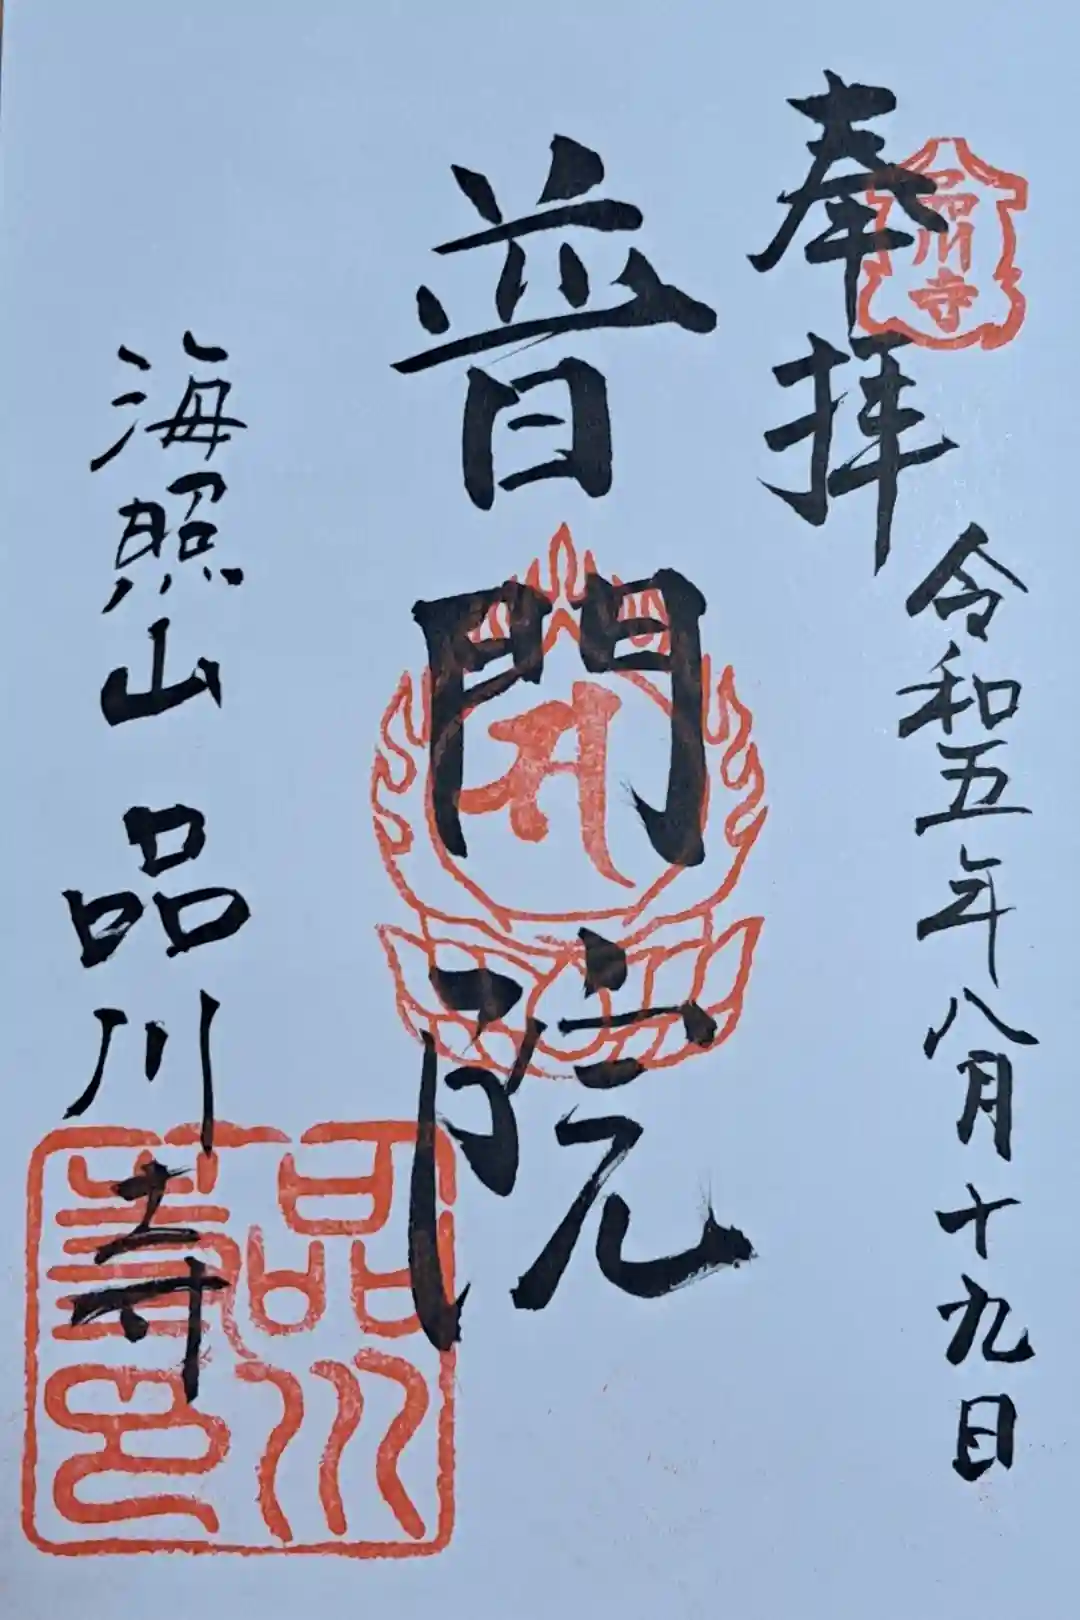 奉拝
品川寺
令和五年八月十九日
普門院
海照山 品川寺
品川寺印